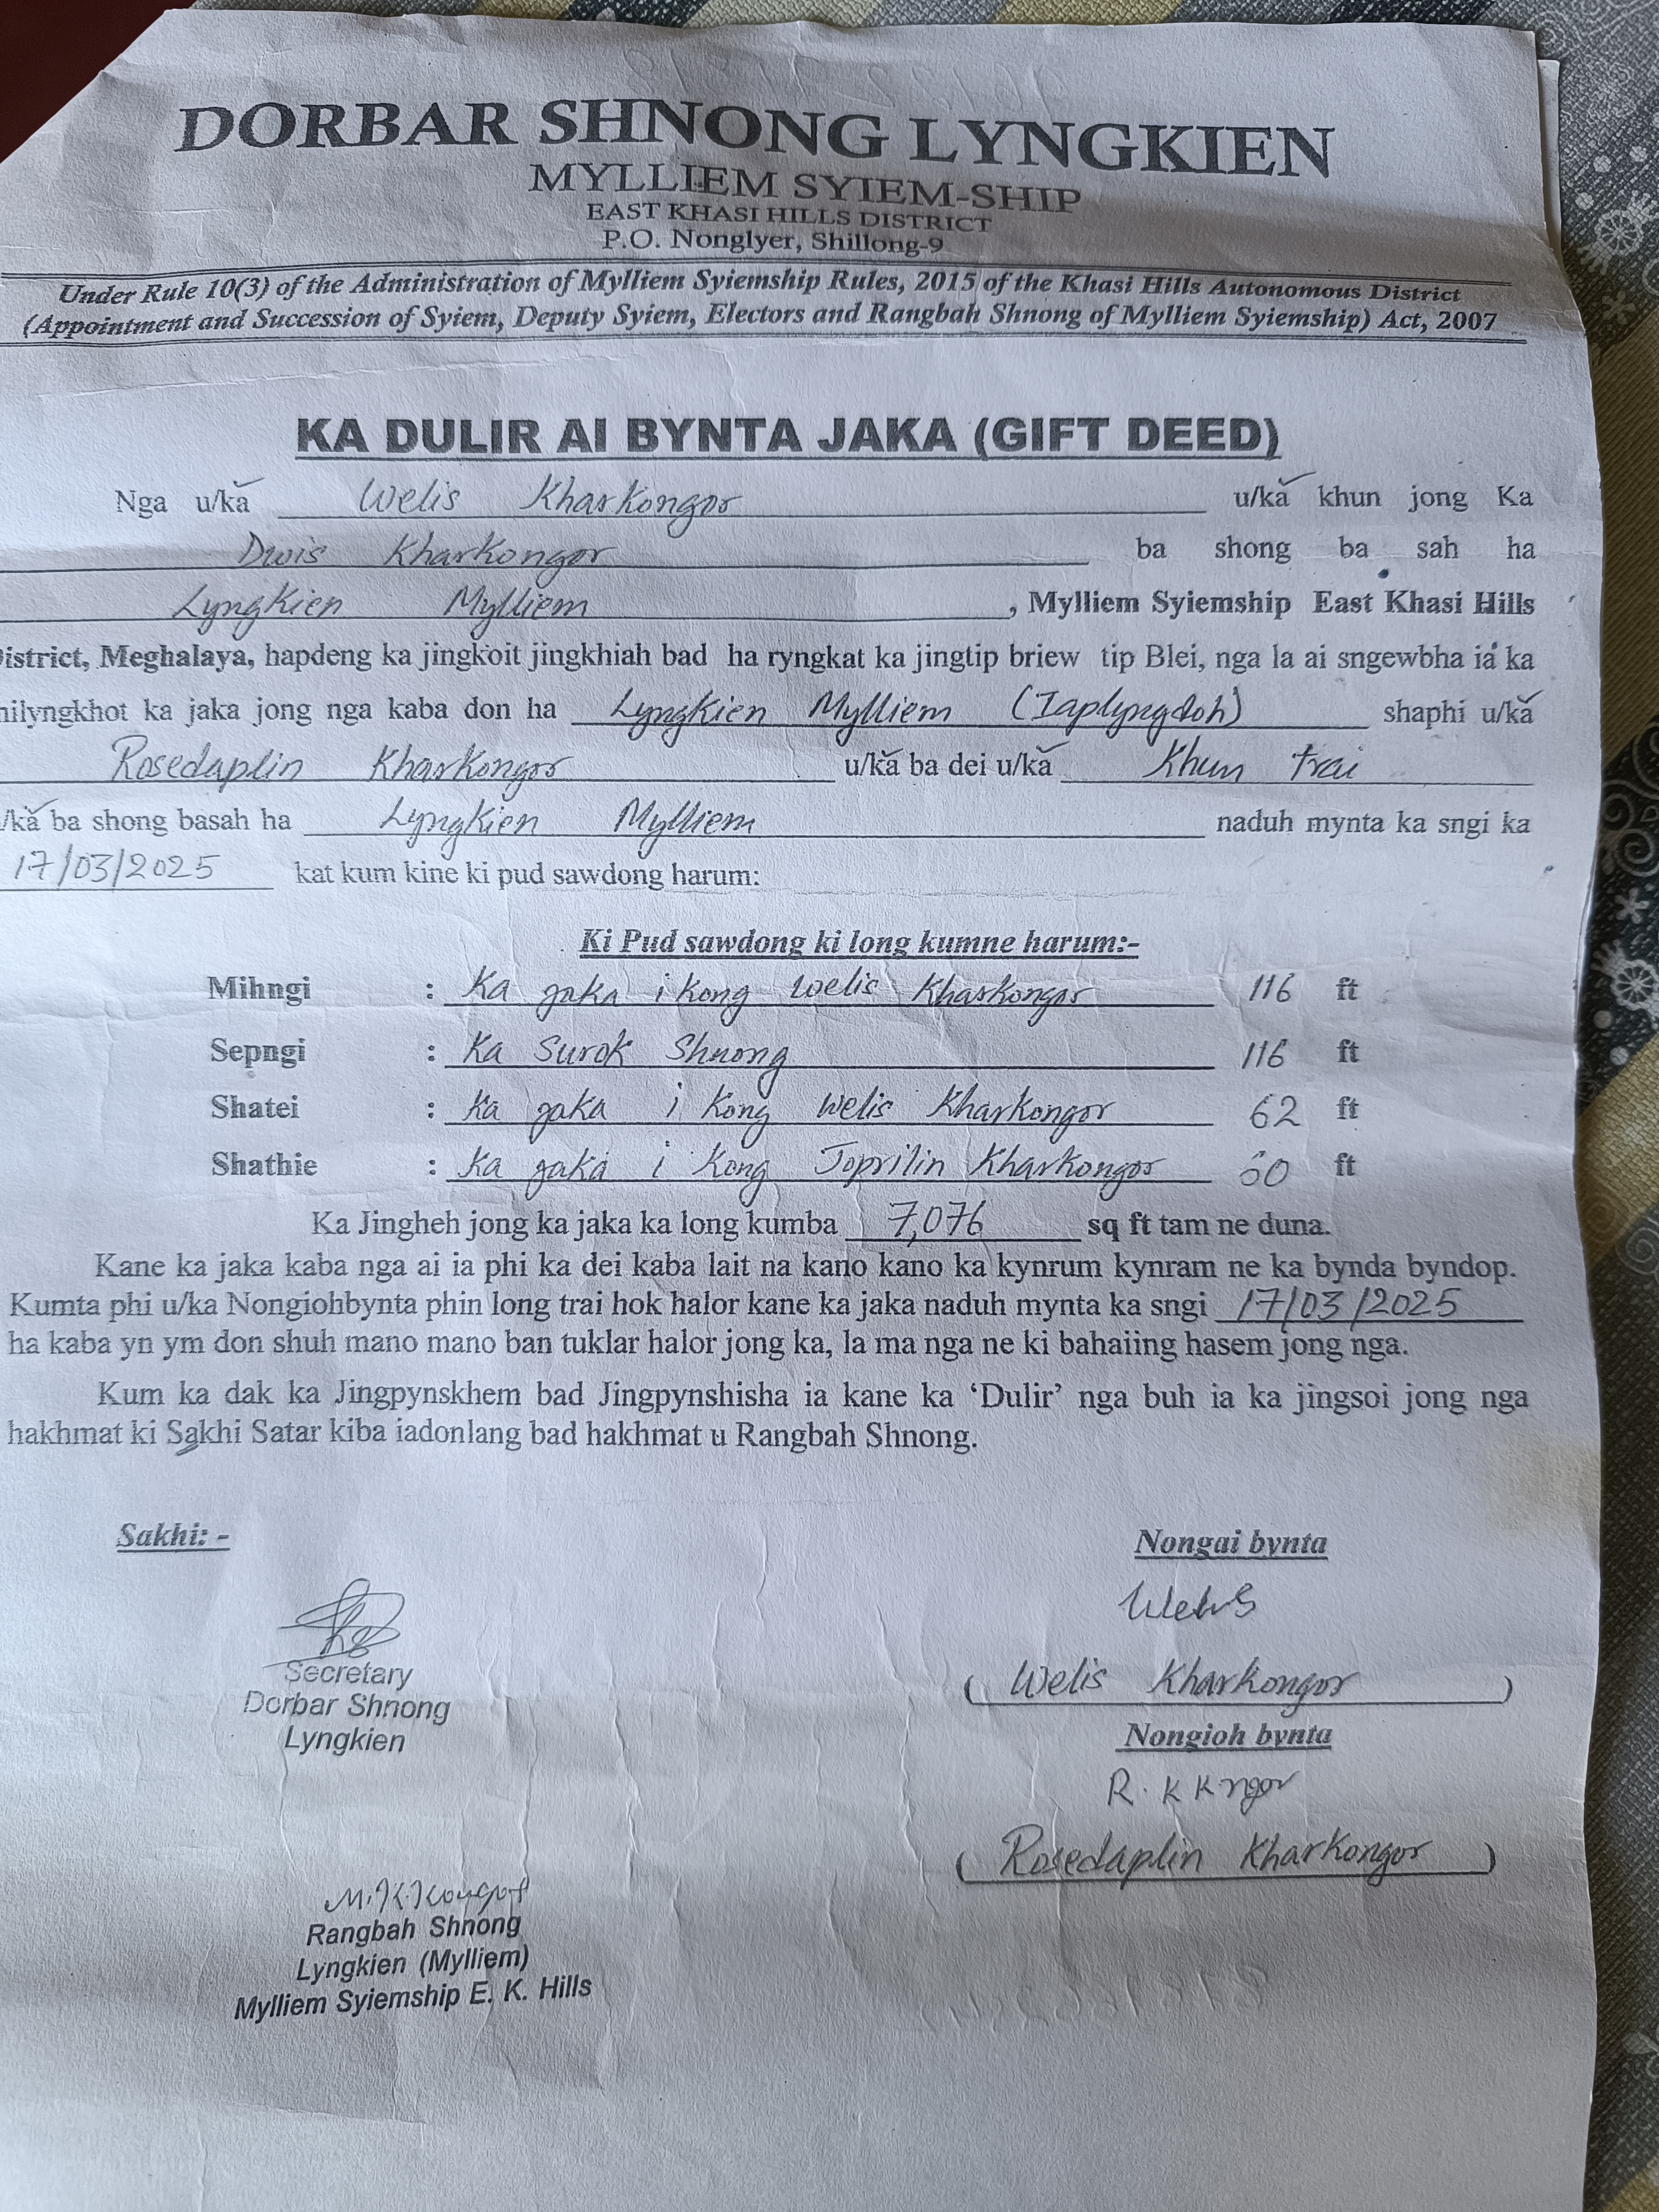 DORBAR SHNONG LYNGKIEN
MYLLIEM SYIEM-SHIP
EAST KHASI HILLS DISTRICT
P.O. Nonglyer, Shillong-9
Under Rule 10(3) of the Administration of Mylliem Syiemship Rules, 2015 of the Khasi Hills Autonomous District
(Appointment and Succession of Syiem, Deputy Syiem, Electors and Rangbah Shnong of Mylliem Syiemship) Act, 2007
KA DULIR AI BYNTA JAKA (GIFT DEED)
Nga u/ka Welis Kharkongor u/ka khun jong Ka
Dwis Kharkongor ba shong ba sah ha
Lyngkien Mylliem, Mylliem Syiemship East Khasi Hills
istrict, Meghalaya, hapdeng ka jingkoit jingkhiah bad ha ryngkat ka jingtip briew tip Blei, nga la ai sngewbha ia ka
hilyngkhot ka jaka jong nga kaba don ha Lyngkien Mylliem (Iaplyngdoh) shaphi u/ka
Rosedaplin Kharkongor u/ka ba dei u/ka Khun trai
/ka ba shong basah ha Lyngkien Mylliem naduh mynta ka sngi ka
17/03/2025 kat kum kine ki pud sawdong harum:
Ki Pud sawdong ki long kumne harum:-
Mihngi : Ka jaka i kong Welis Kharkongor 116 ft
Sepngi : Ka Surok Shnong 116 ft
Shatei : Ka jaka i Kong Welis Kharkongor 62 ft
Shathie : Ka jaka i Kong Joprilin Kharkongor 60 ft
Ka Jingheh jong ka jaka ka long kumba 7,076 sq ft tam ne duna.
Kane ka jaka kaba nga ai ia phi ka dei kaba lait na kano kano ka kynrum kynram ne ka bynda byndop.
Kumta phi u/ka Nongiohbynta phin long trai hok halor kane ka jaka naduh mynta ka sngi 17/03/2025
ha kaba yn ym don shuh mano mano ban tuklar halor jong ka, la ma nga ne ki bahaiing hasem jong nga.
Kum ka dak ka Jingpynskhem bad Jingpynshisha ia kane ka ‘Dulir’ nga buh ia ka jingsoi jong nga
hakhmat ki Sakhi Satar kiba iadonlang bad hakhmat u Rangbah Shnong.
Sakhi: -
Secretary
Dorbar Shnong
Lyngkien
M.K.Kongor
Rangbah Shnong
Lyngkien (Mylliem)
Mylliem Syiemship E. K. Hills
Nongai bynta
Welis
( Welis Kharkongor )
Nongioh bynta
R. K Kngor
( Rosedaplin Kharkongor )